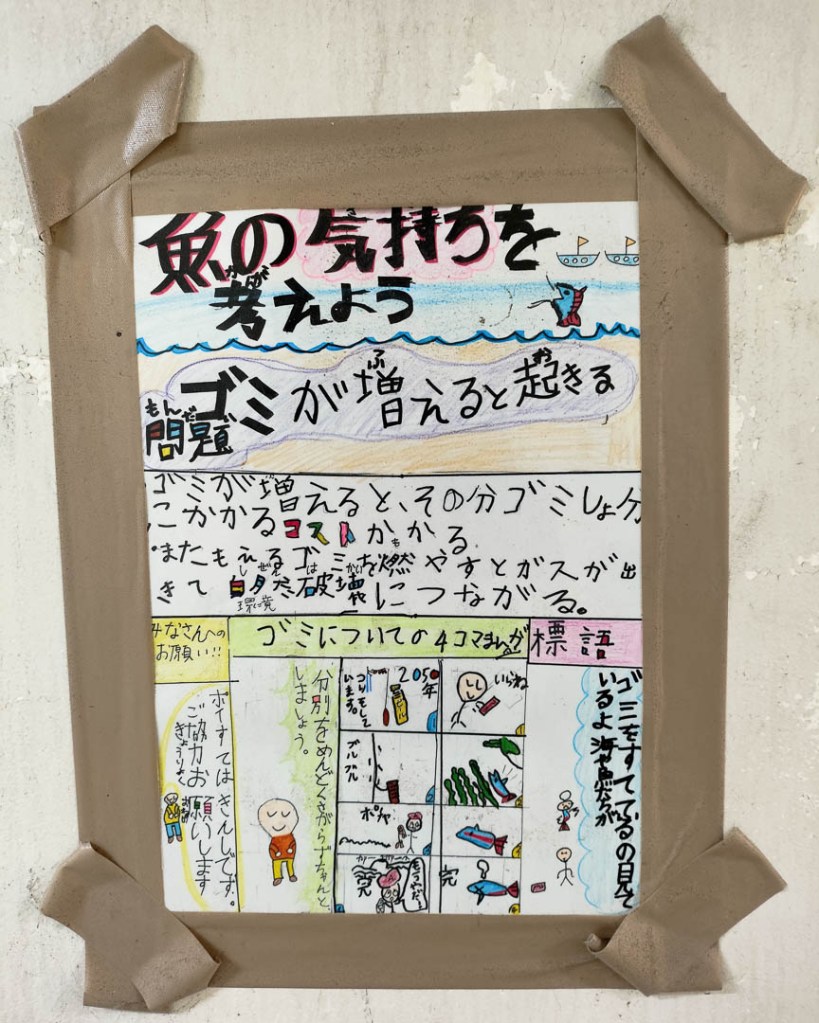 魚の気持ちを
考えよう
ゴミが増えると起きる
問題
ゴミが増えると、その分ゴミしょ分
にかかるコストがかかる
またもえるゴミを燃やすとガスが出
きて自然破壊や
環境
につながる。
みなさんへの
お願い!!
ポイすてはきんしです。
ご協力お
願いします
ゴミについての4コマまんが
分別をめんどくさがらずちゃんと、
しましょう。
いらね
2050年
ブルブル
ポヤ
完
完
標語
ゴミをすててるの見て
いるよ 海や魚たちが